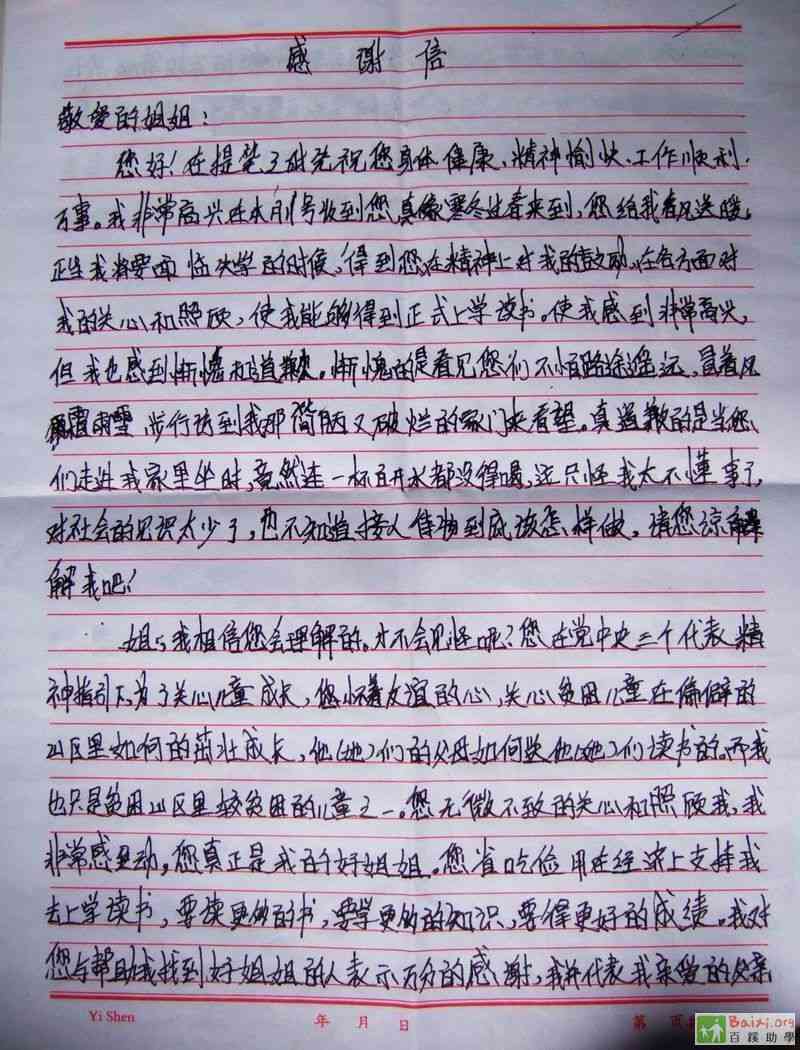 感谢信
敬爱的姐姐:
您好!在提笔之时先祝您身体健康、精神愉快、工作顺利、
万事。我非常高兴在本月 号收到您真像寒冬过春来到,您给我春风送暖。
正当我将要面临失学的时候,得到您在精神上对我的鼓励,在各方面对
我的关心和照顾,使我能够得到正式上学读书。使我感到非常高兴,
但我也感到惭愧和道歉。惭愧的是看见您们不怕路途遥远,冒着风
霜雨雪 步行访到我那简陋又破烂的家门来看望。真道歉的是当您
们走进我家里坐时,竟然连一杯白开水都没得喝,这只怪我太不懂事了,
对社会的见识太少了,也不知道接人待物到底该怎样做。请您谅解
解我吧!
姐姐我相信您会理解的。才不会见怪吧?您在党中央三个代表精
神指引下,为了关心儿童成长,您怀着友谊的心,关心贫困儿童在偏僻的
山区里如何的茁壮成长,他(她)们的父母如何送他(她)们读书的。而我
也只是贫困山区里较贫困的儿童之一。您无微不致的关心和照顾我,我
非常感动,您真正是我的好姐姐。您省吃俭用在经济上支持我
去上学读书,要读更多的书,要学更多的知识,要得更好的成绩。我对
您与帮助我找到好姐姐的人表示万分的感谢,我并代表我亲爱的父亲
Yi Shen 年 月 日 第 页
Baixi.org
百蹊助學